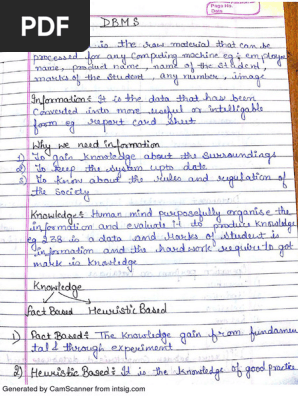 PDF
Page No.
Date
DBMS
is the raw material that can be
processed for any Computing machine eg: employee
name, product name, name of the student,
marks of the student, any number, image
Information: It is the data that has been
Converted into more useful or intelligible
form eg report card sheet
Why we need information
1) To gain knowledge about the surroundings
2) To keep the system upto date
3) To know about the rules and regulation of
the Society
Knowledge: Human mind purposefully organise the
information and evaluate it to produce knowledge
eg 238 is a data and Marks of student is
information and the hardwork require to get
mark is knowledge
Knowledge
Fact Based Heuristic Based
1) Fact Based: The knowledge gain from fundamen
tals through experiment
2) Heuristic Based: It is the knowledge of good practice
Generated by CamScanner from intsig.com